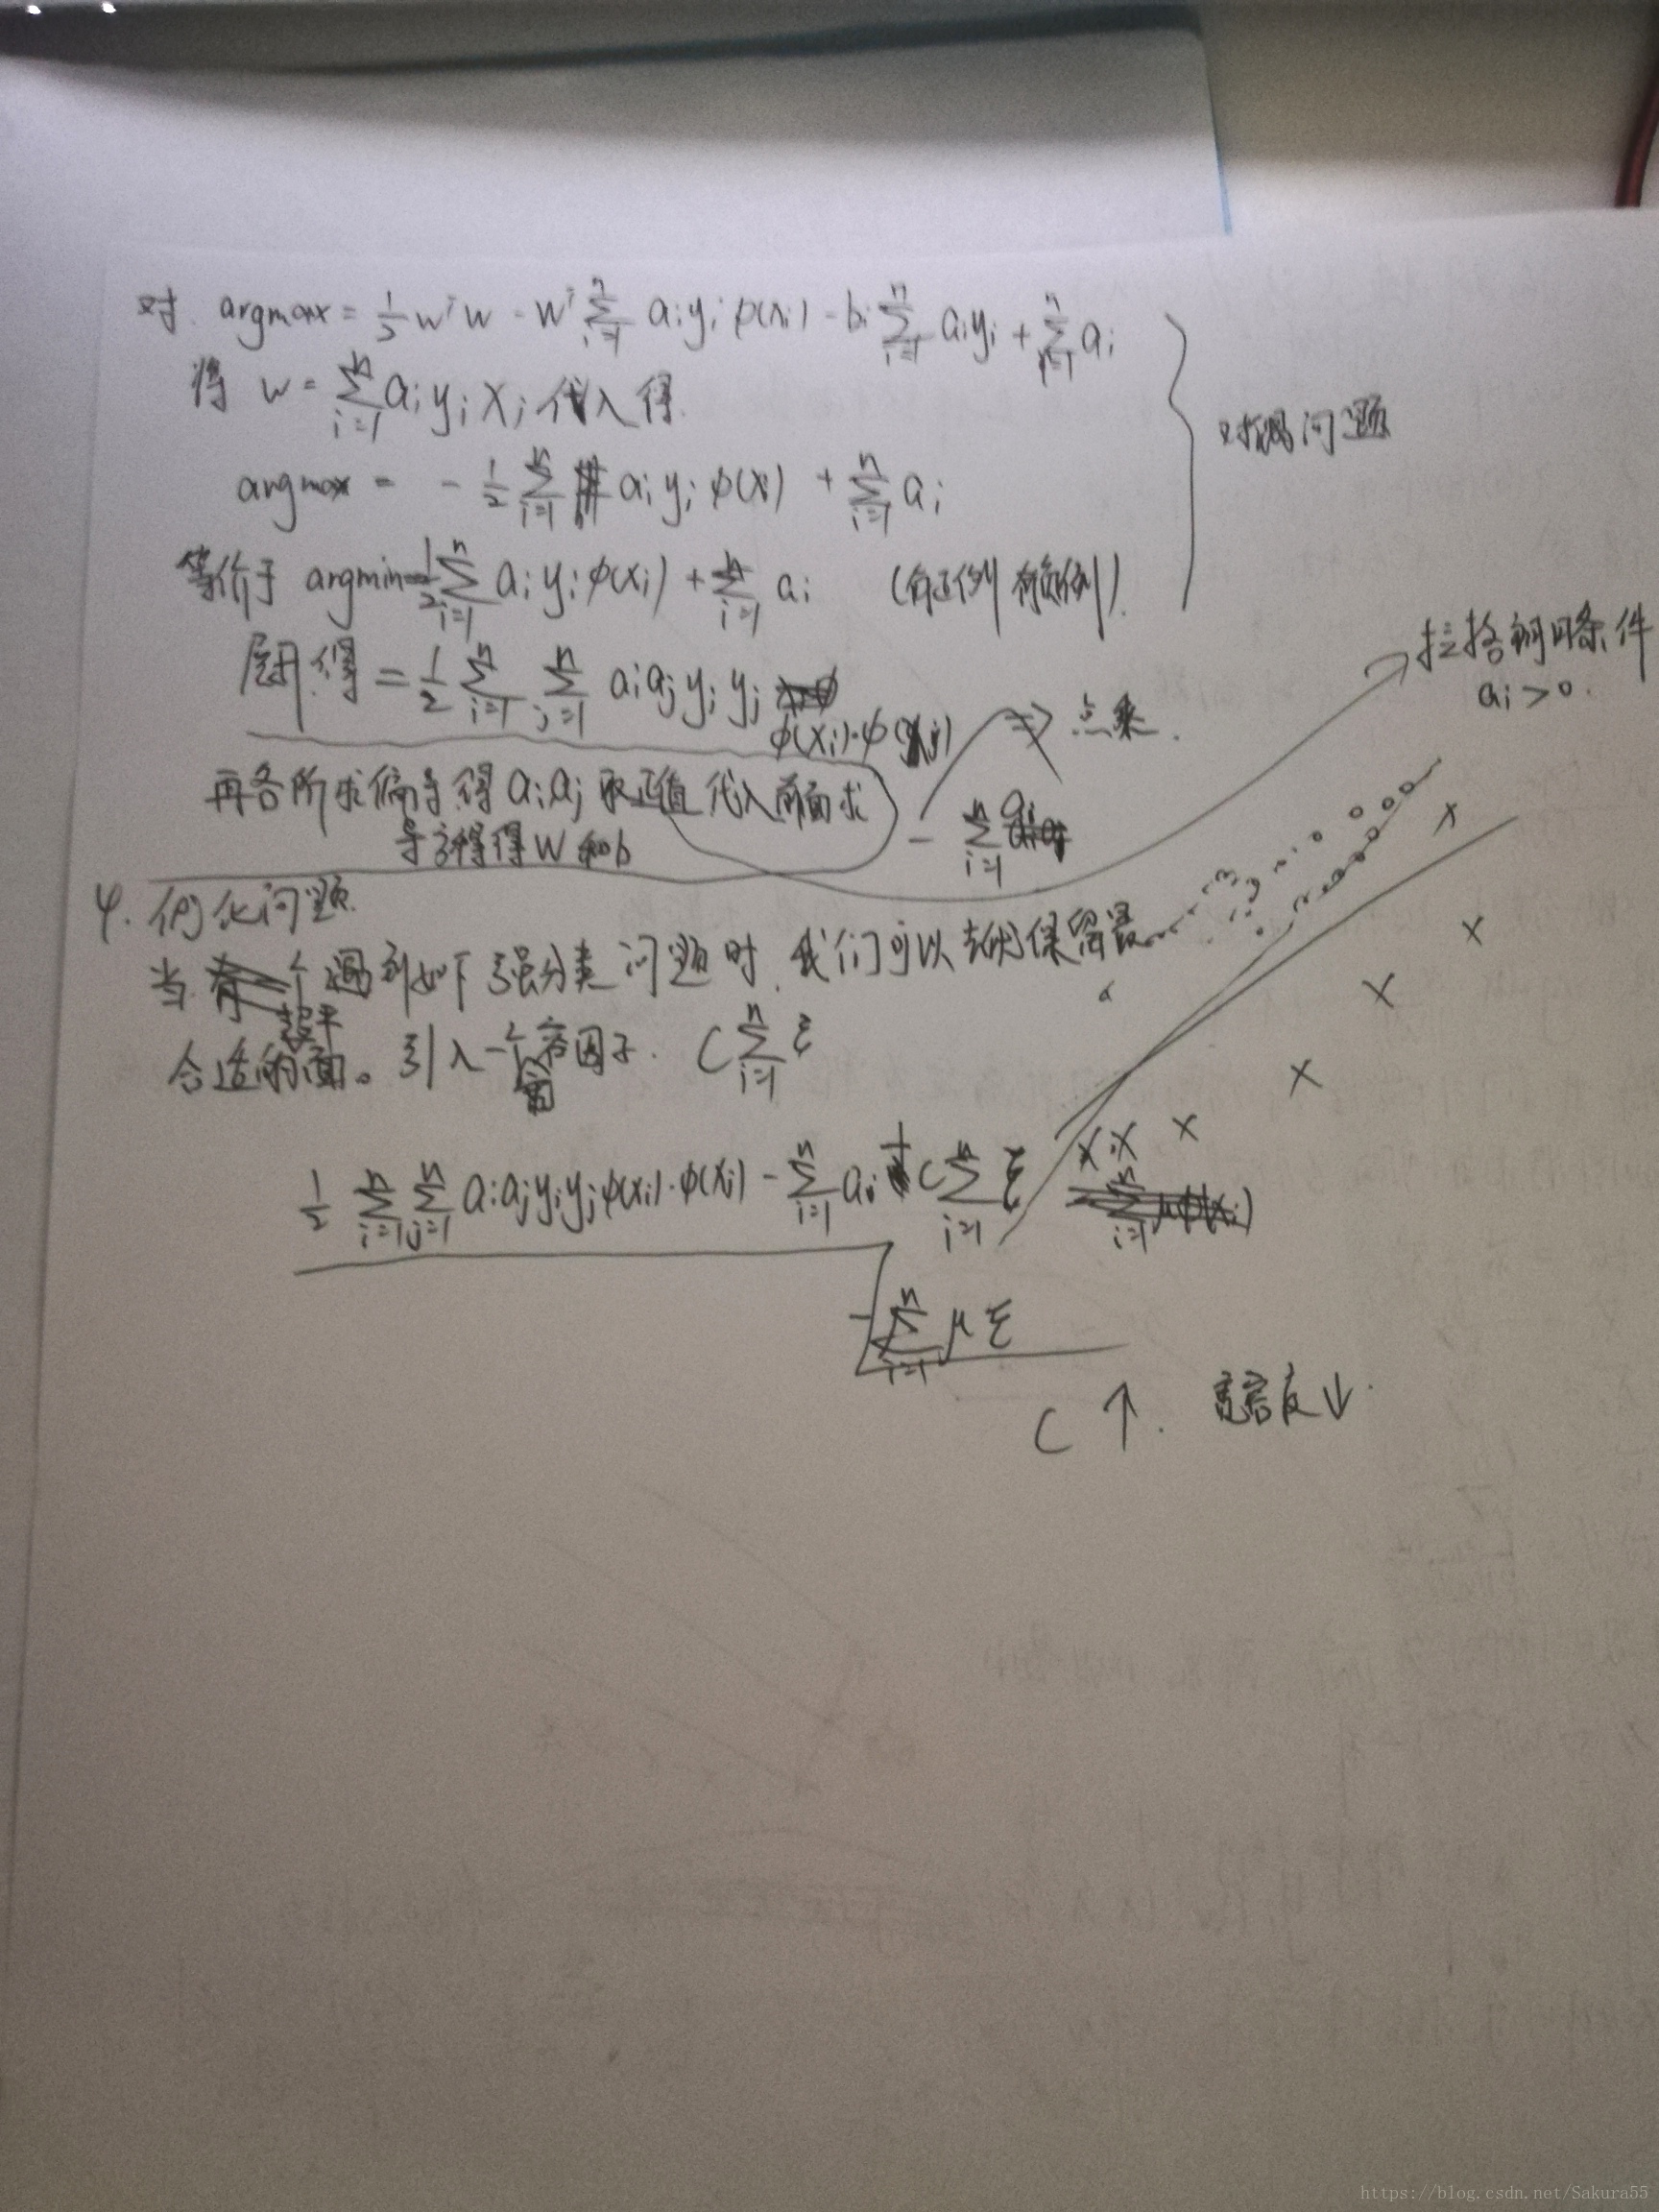 对 argmax = 1/2 wᵀw - wᵀ ∑ᵢ₌₁ⁿ aᵢyᵢφ(xᵢ) - bᵢ ∑ᵢ₌₁ⁿ aᵢyᵢ + ∑ᵢ₌₁ⁿ aᵢ
将 w = ∑ᵢ₌₁ⁿ aᵢyᵢxᵢ 代入得
对偶问题
argmax = - 1/2 ∑ᵢ₌₁ⁿ aᵢyᵢφ(xᵢ) + ∑ᵢ₌₁ⁿ aᵢ
等价于 argmin 1/2 ∑ᵢ₌₁ⁿ aᵢyᵢφ(xᵢ) + ∑ᵢ₌₁ⁿ aᵢ (有正例 有负例).
展开得 = 1/2 ∑ᵢ₌₁ⁿ ∑ⱼ₌₁ⁿ aᵢaⱼyᵢyⱼ φ(xᵢ)·φ(xⱼ)
点乘.
拉格朗日条件
aᵢ > 0.
再各阶求偏导得 aᵢaⱼ 取正值代入前面求
- ∑ᵢ₌₁ⁿ aᵢ
得 w 和 b
4. 优化问题
当 遇到如下强分类问题时, 我们可以 保留最
合适的超平面。引入一个 因子. C ∑ᵢ₌₁ⁿ ξ
1/2 ∑ᵢ₌₁ⁿ ∑ⱼ₌₁ⁿ aᵢaⱼyᵢyⱼφ(xᵢ)·φ(xⱼ) - ∑ᵢ₌₁ⁿ aᵢ + C ∑ᵢ₌₁ⁿ ξ
- ∑ᵢ₌₁ⁿ μξ
C ↑. 宽容度 ↓.
https://blog.csdn.net/Sakura55